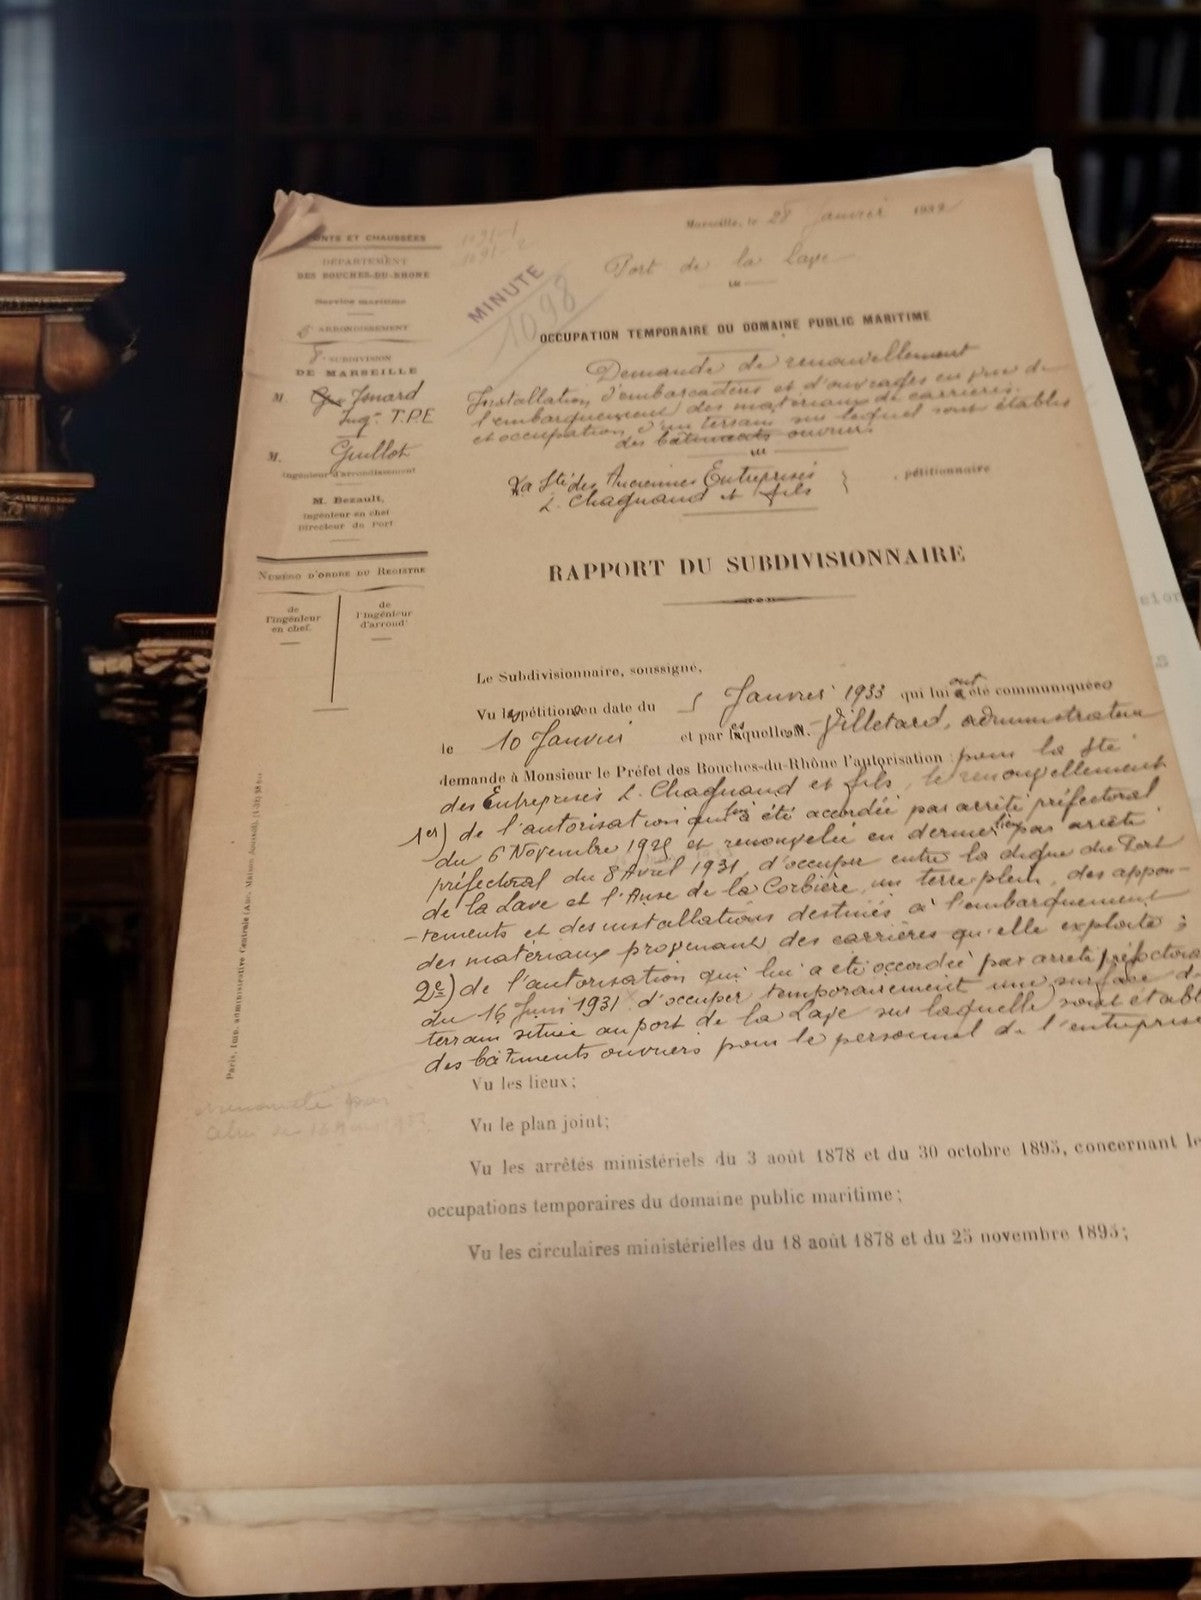 Marseille, le 28 Janvier
PONTS ET CHAUSSÉES
DÉPARTEMENT
DES BOUCHES-DU-RHÔNE
Service maritime
ARRONDISSEMENT
SUBDIVISION
DE MARSEILLE
M. Imard
Ingr T.P.E
M. Guillot
Ingénieur d'arrondissement
M. Bezault,
Ingénieur en chef
Directeur du Port
NUMÉRO D'ORDRE DU REGISTRE
de
l'ingénieur
en chef.
de
l'ingénieur
d'arrondt
MINUTE
1098
Port de la Lave
OCCUPATION TEMPORAIRE DU DOMAINE PUBLIC MARITIME
Demande de renouvellement
Installation d'embarcadères et d'ouvrages en vue de
l'embarquement des matériaux de carrières
et occupation d'un terrain sur lequel sont établis
des bâtiments ouvriers
La Sté des Anciennes Entreprises
L. Chagnaud et fils
pétitionnaire
RAPPORT DU SUBDIVISIONNAIRE
Le Subdivisionnaire, soussigné,
Vu la pétition en date du 5 Janvier 1933 qui lui ont été communiquées
le 10 Janvier et par lesquelles M. Villetard, administrateur
demande à Monsieur le Préfet des Bouches-du-Rhône l'autorisation pour la Sté
des Entreprises L. Chagnaud et fils, le renouvellement
1er) de l'autorisation qui lui a été accordée par arrêté préfectoral
du 6 Novembre et renouvelée en dernier lieu par arrêté
préfectoral du 8 Avril 1931, d'occuper entre la digue du Port
de la Lave et l'Anse de la Corbière, un terre plein, des appon-
-tements et des installations destinés à l'embarquement
des matériaux provenant des carrières qu'elle exploite ;
2e) de l'autorisation qui lui a été accordée par arrêté préfectoral
du 16 Juin 1931 d'occuper temporairement une surface de
terrain située au port de la Lave sur laquelle sont établ
des bâtiments ouvriers pour le personnel de l'entreprise
Vu les lieux;
Vu le plan joint;
Vu les arrêtés ministériels du 3 août 1878 et du 30 octobre 1895, concernant le
occupations temporaires du domaine public maritime;
Vu les circulaires ministérielles du 18 août 1878 et du 25 novembre 1895;
Paris, Imp. administrative Centrale